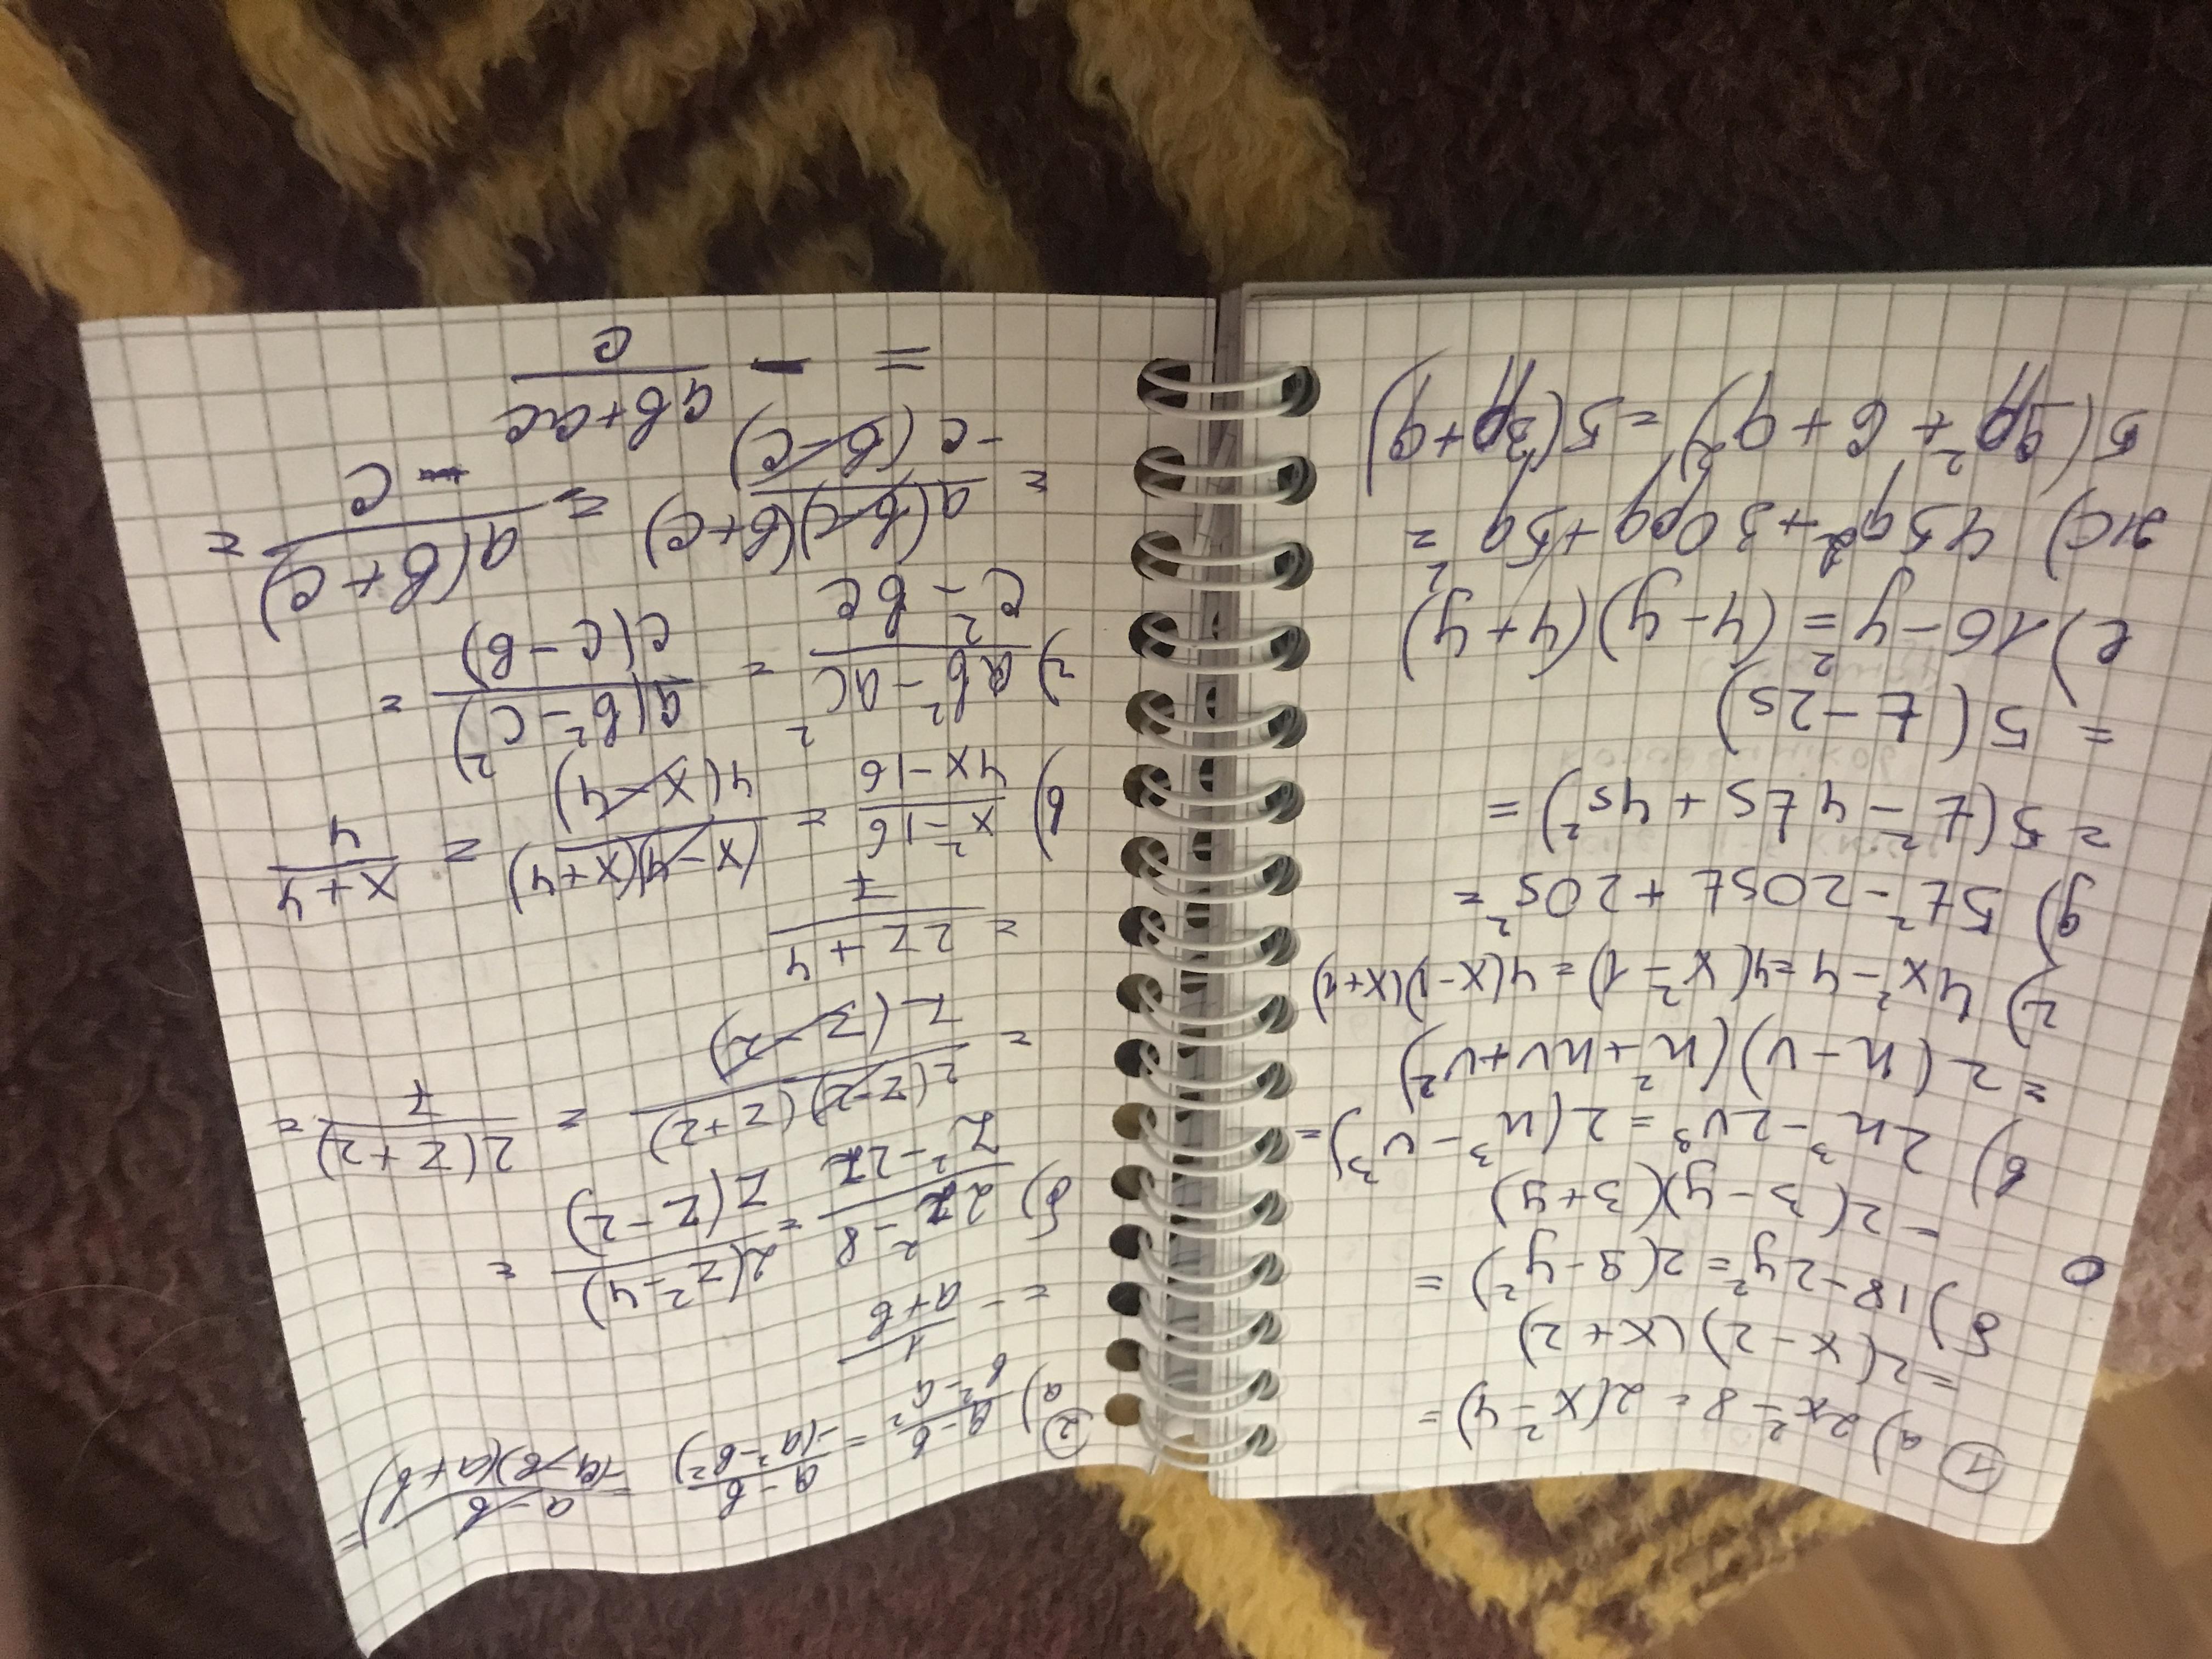 ① а) 2x² - 8 = 2(x² - 4) =
= 2(x - 2)(x + 2)
б) 18 - 2y² = 2(9 - y²) =
- 2(3 - y)(3 + y)
в) 2u³ - 2v³ = 2(u³ - v³) =
= 2(u - v)(u² + uv + v²)
г) 4x² - 4 = 4(x² - 1) = 4(x - 1)(x + 1)
g) 5t² - 20st + 20s² =
= 5(t² - 4ts + 4s²) =
= 5(t - 2s)
е) 16 - y² = (4 - y)(4 + y)
ж) 45q² + 30pq + 5q² =
5(9p² + 6 + q²) = 5(3p + q)
② а) a - b / b² - a² = a - b / -(a² - b²) = a - b / -(a - b)(a + b) =
= - 1 / a + b
б) 2z² - 8 / z² - 2z = 2(z² - 4) / z(z - 2) =
= 2(z - 2)(z + 2) / z(z - 2) = 2(z + 2) / z =
= 2z + 4 / z
в) x² - 16 / 4x - 16 = (x - 4)(x + 4) / 4(x - 4) = x + 4 / 4
г) ab² - ac² / c² - bc = a(b² - c²) / c(c - b) =
= a(b - c)(b + c) / -c(b - c) = a(b + c) / - c =
= - ab + ac / c